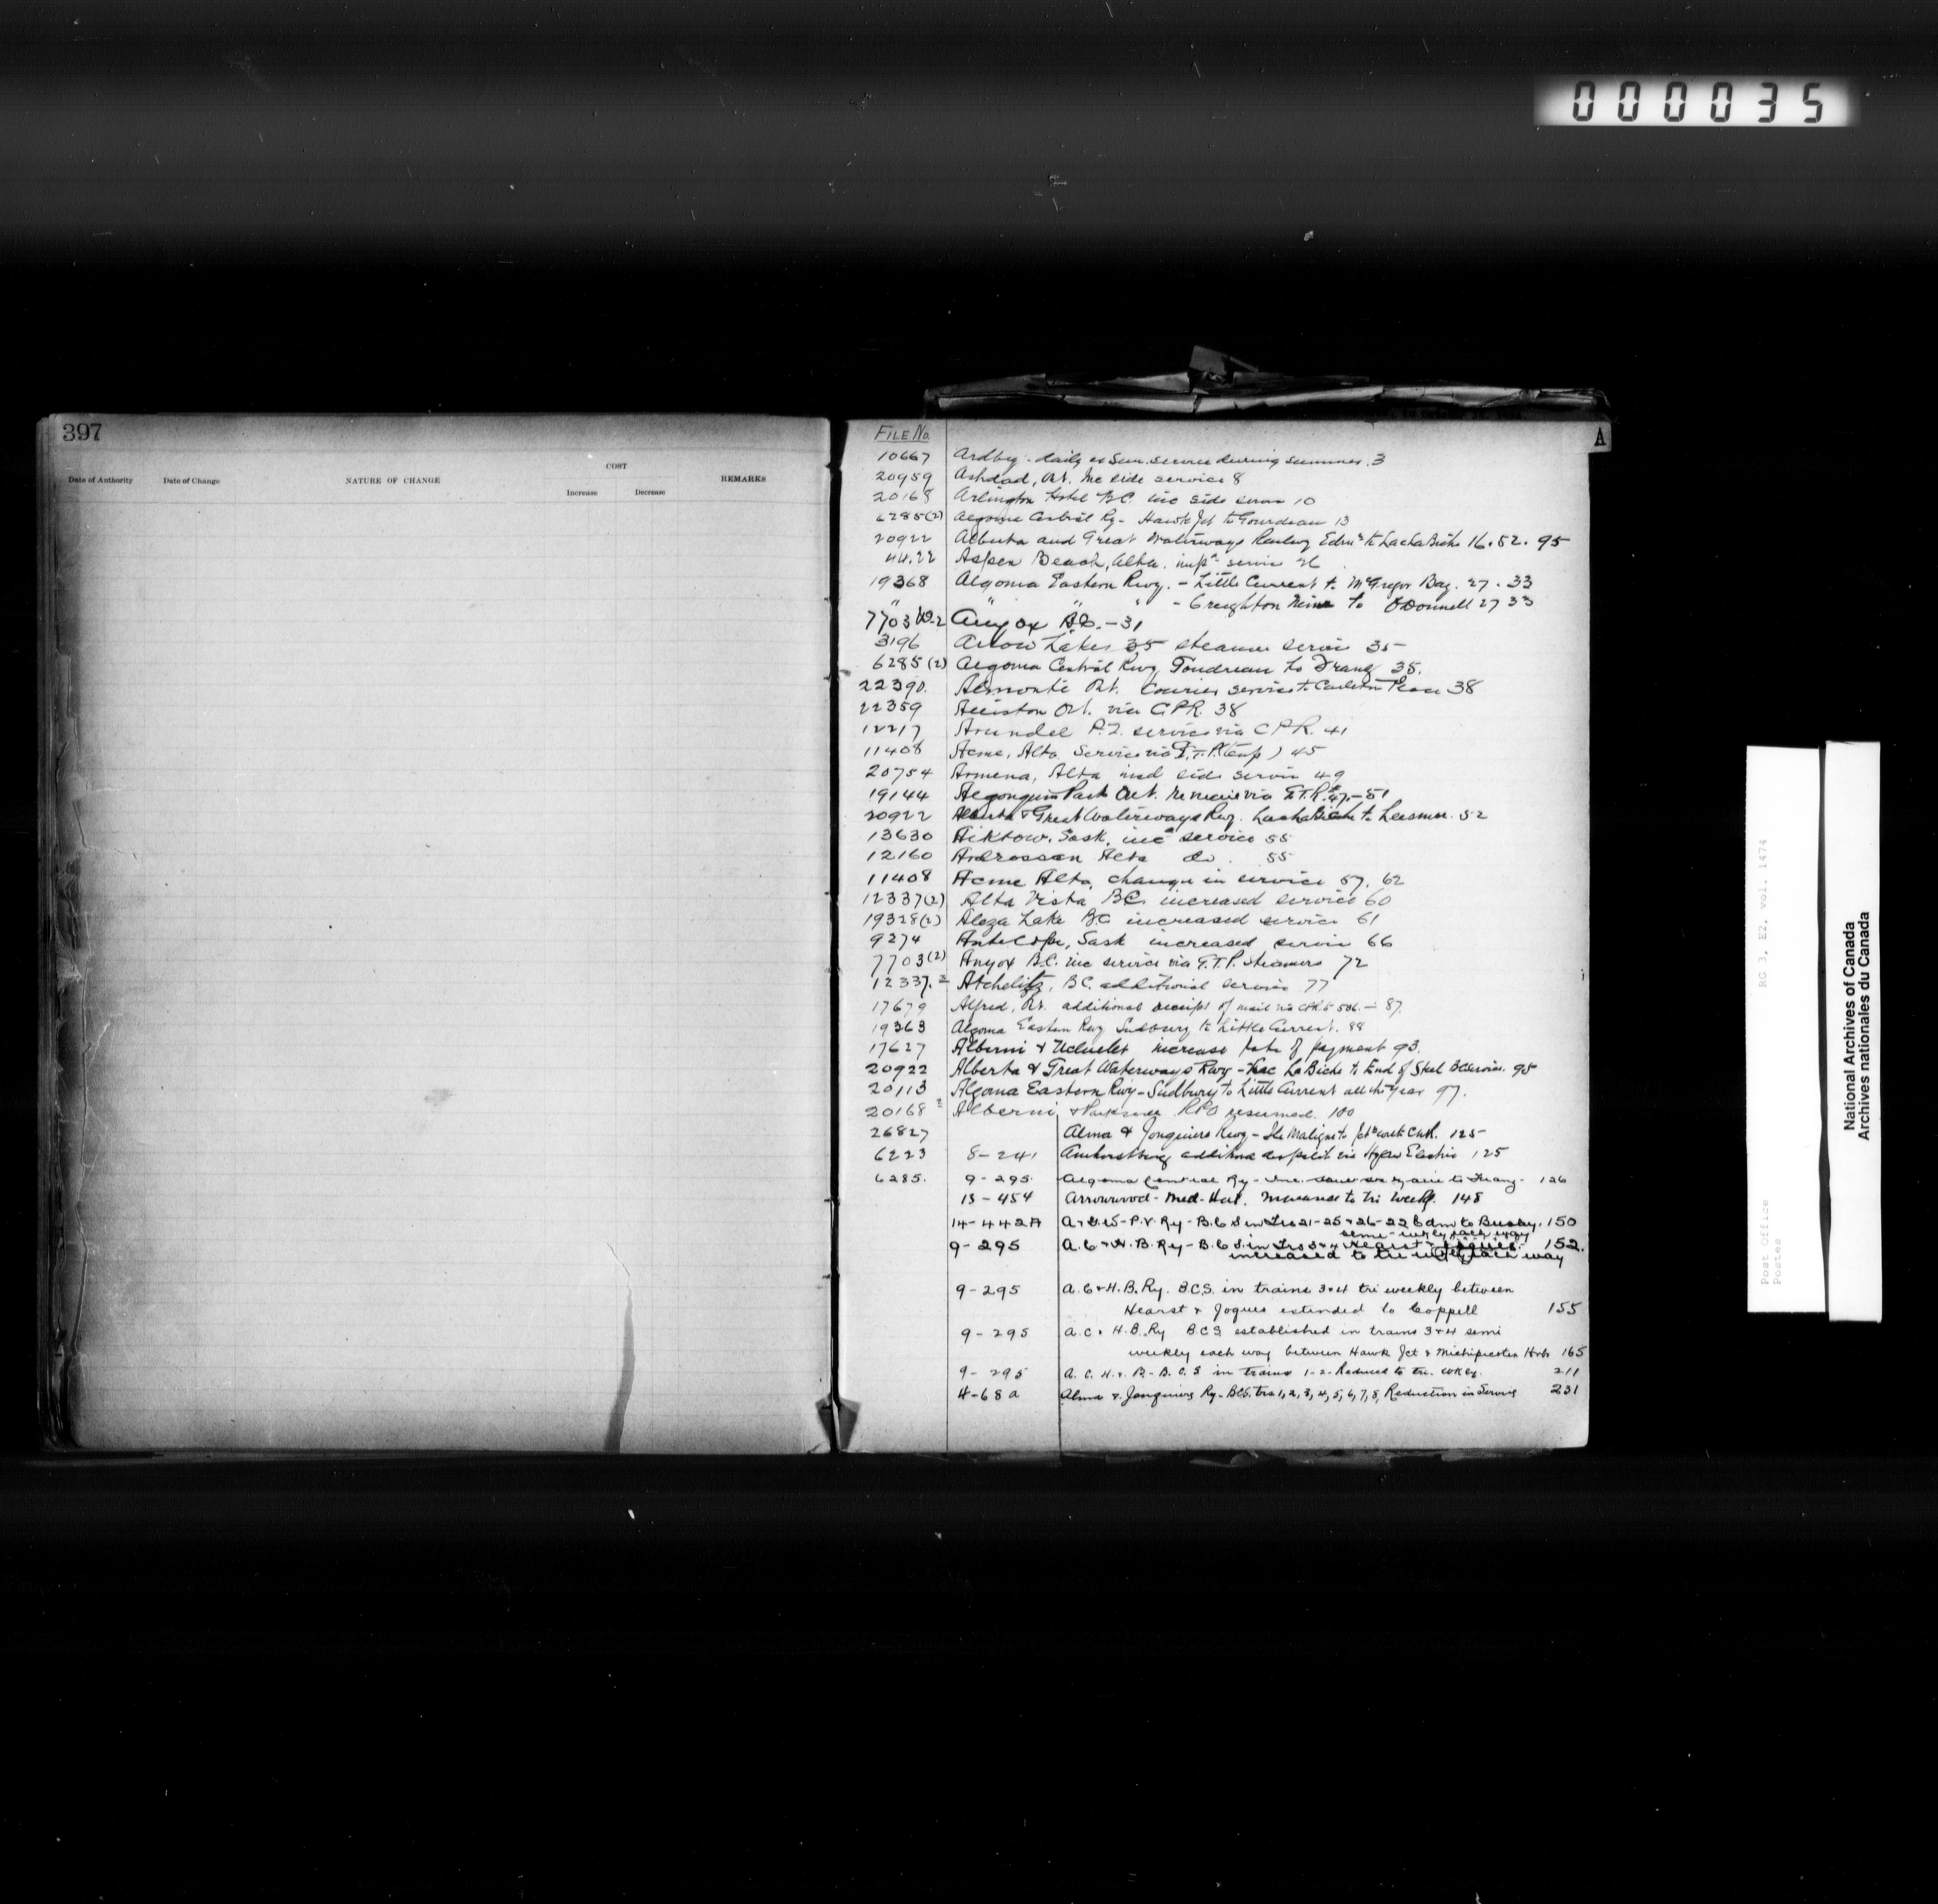 000035
397
COST
Date of Authority Date of Change NATURE OF CHANGE Increase Decrease REMARKS
FILE No. A
10667 Ardbeg - daily ex Sun. service during summer. 3
20959 Ashdad, Ont. inc side service 8
20168 Arlington Hotel BC inc side 10
6285(2) Algoma Central Ry - Hawk Jct to Goudreau 13
20922 Alberta and Great Waterways Railway Edmn to Lac La Biche 16. 52. 95
4422 Aspen Beach, Alta. service 26
19368 Algoma Eastern Rwy. - Little Current to McGregor Bay. 27. 33
" " " " - Creighton Mine to O'Donnell 27 33
7703 Anyox B.C. - 31
3196 Arrow Lakes 35 steamer service 35
6285(2) Algoma Central Rwy Goudreau to Franz 35.
22390. Almonte Ont. Courier service to Carleton Place 38
22359 Alliston Ont. via C.P.R. 38
12217 Arundel P.Q. service via C P R. 41
11408 Acme, Alta. Service via G.T.P. (Temp) 45
20754 Armena, Alta incd side service 49
19144 Algonquin Park Ont. via G.T.R. 47. - 51
20922 Alberta & Great Waterways Rwy. Lac La Biche to Leismer. 52
13630 Aiktow, Sask, inc service 55
12160 Ardrossan Alta do. 55
11408 Acme Alta, change in service 57, 62
12337(2) Alta Vista BC increased service 60
19328(2) Aleza Lake BC increased service 61
9274 Antelope, Sask increased service 66
7703(2) Anyox B.C. inc service via G.T.P. steamers 72
12337.2 Atchelitz, B.C. additional service 77
17679 Alfred, Ont. additional receipt of mail via CPR 506. - 87.
19363 Algoma Eastern Rwy Sudbury to Little Current. 88
17627 Alberni & Ucluelet increase rate of payment 93.
20922 Alberta & Great Waterways Rwy - Lac La Biche to End of Steel BC service. 95
20113 Algoma Eastern Rwy - Sudbury to Little Current all the year 97.
20168 2 Alberni & Parksville RPO resumed. 100
26827 Alma & Jonquiere Rwy - Ile Maligne to Jct with C.N.R. 125
6223 8-241 Amherstburg additional despatch via Hydro Electric 125
6285. 9-295. Algoma Central Ry - Inc. to Franz - 126
13-454 Arrowwood - Med. Hat. Increase to tri weekly. 148
14-442A A & G.W - P.V. Ry - B.C S in Trs 21-25 & 26-22 Edm to Busby. 150
semi-wkly each way
9-295 A.C & H.B. Ry - B.C S. in Trs 3 & 4 Hearst & Jogues - 152.
increased to tri wkly each way
9-295 A.C & H.B. Ry. B.C.S. in trains 3 & 4 tri weekly between
Hearst & Jogues extended to Coppell 155
9-295 A.C. & H.B. Ry B.C.S established in trains 3 & 4 semi
weekly each way between Hawk Jct & Michipicoten Harbr 165
9-295 A.C. H. & B. - B.C.S in trains 1-2- Reduced to tri-wkly. 211
4-68a Alma & Jonquiere Ry - BCS. trs 1, 2, 3, 4, 5, 6, 7, 8, Reduction in Service 231
Post Office RG 3, E2, vol. 1474
Postes
National Archives of Canada
Archives nationales du Canada